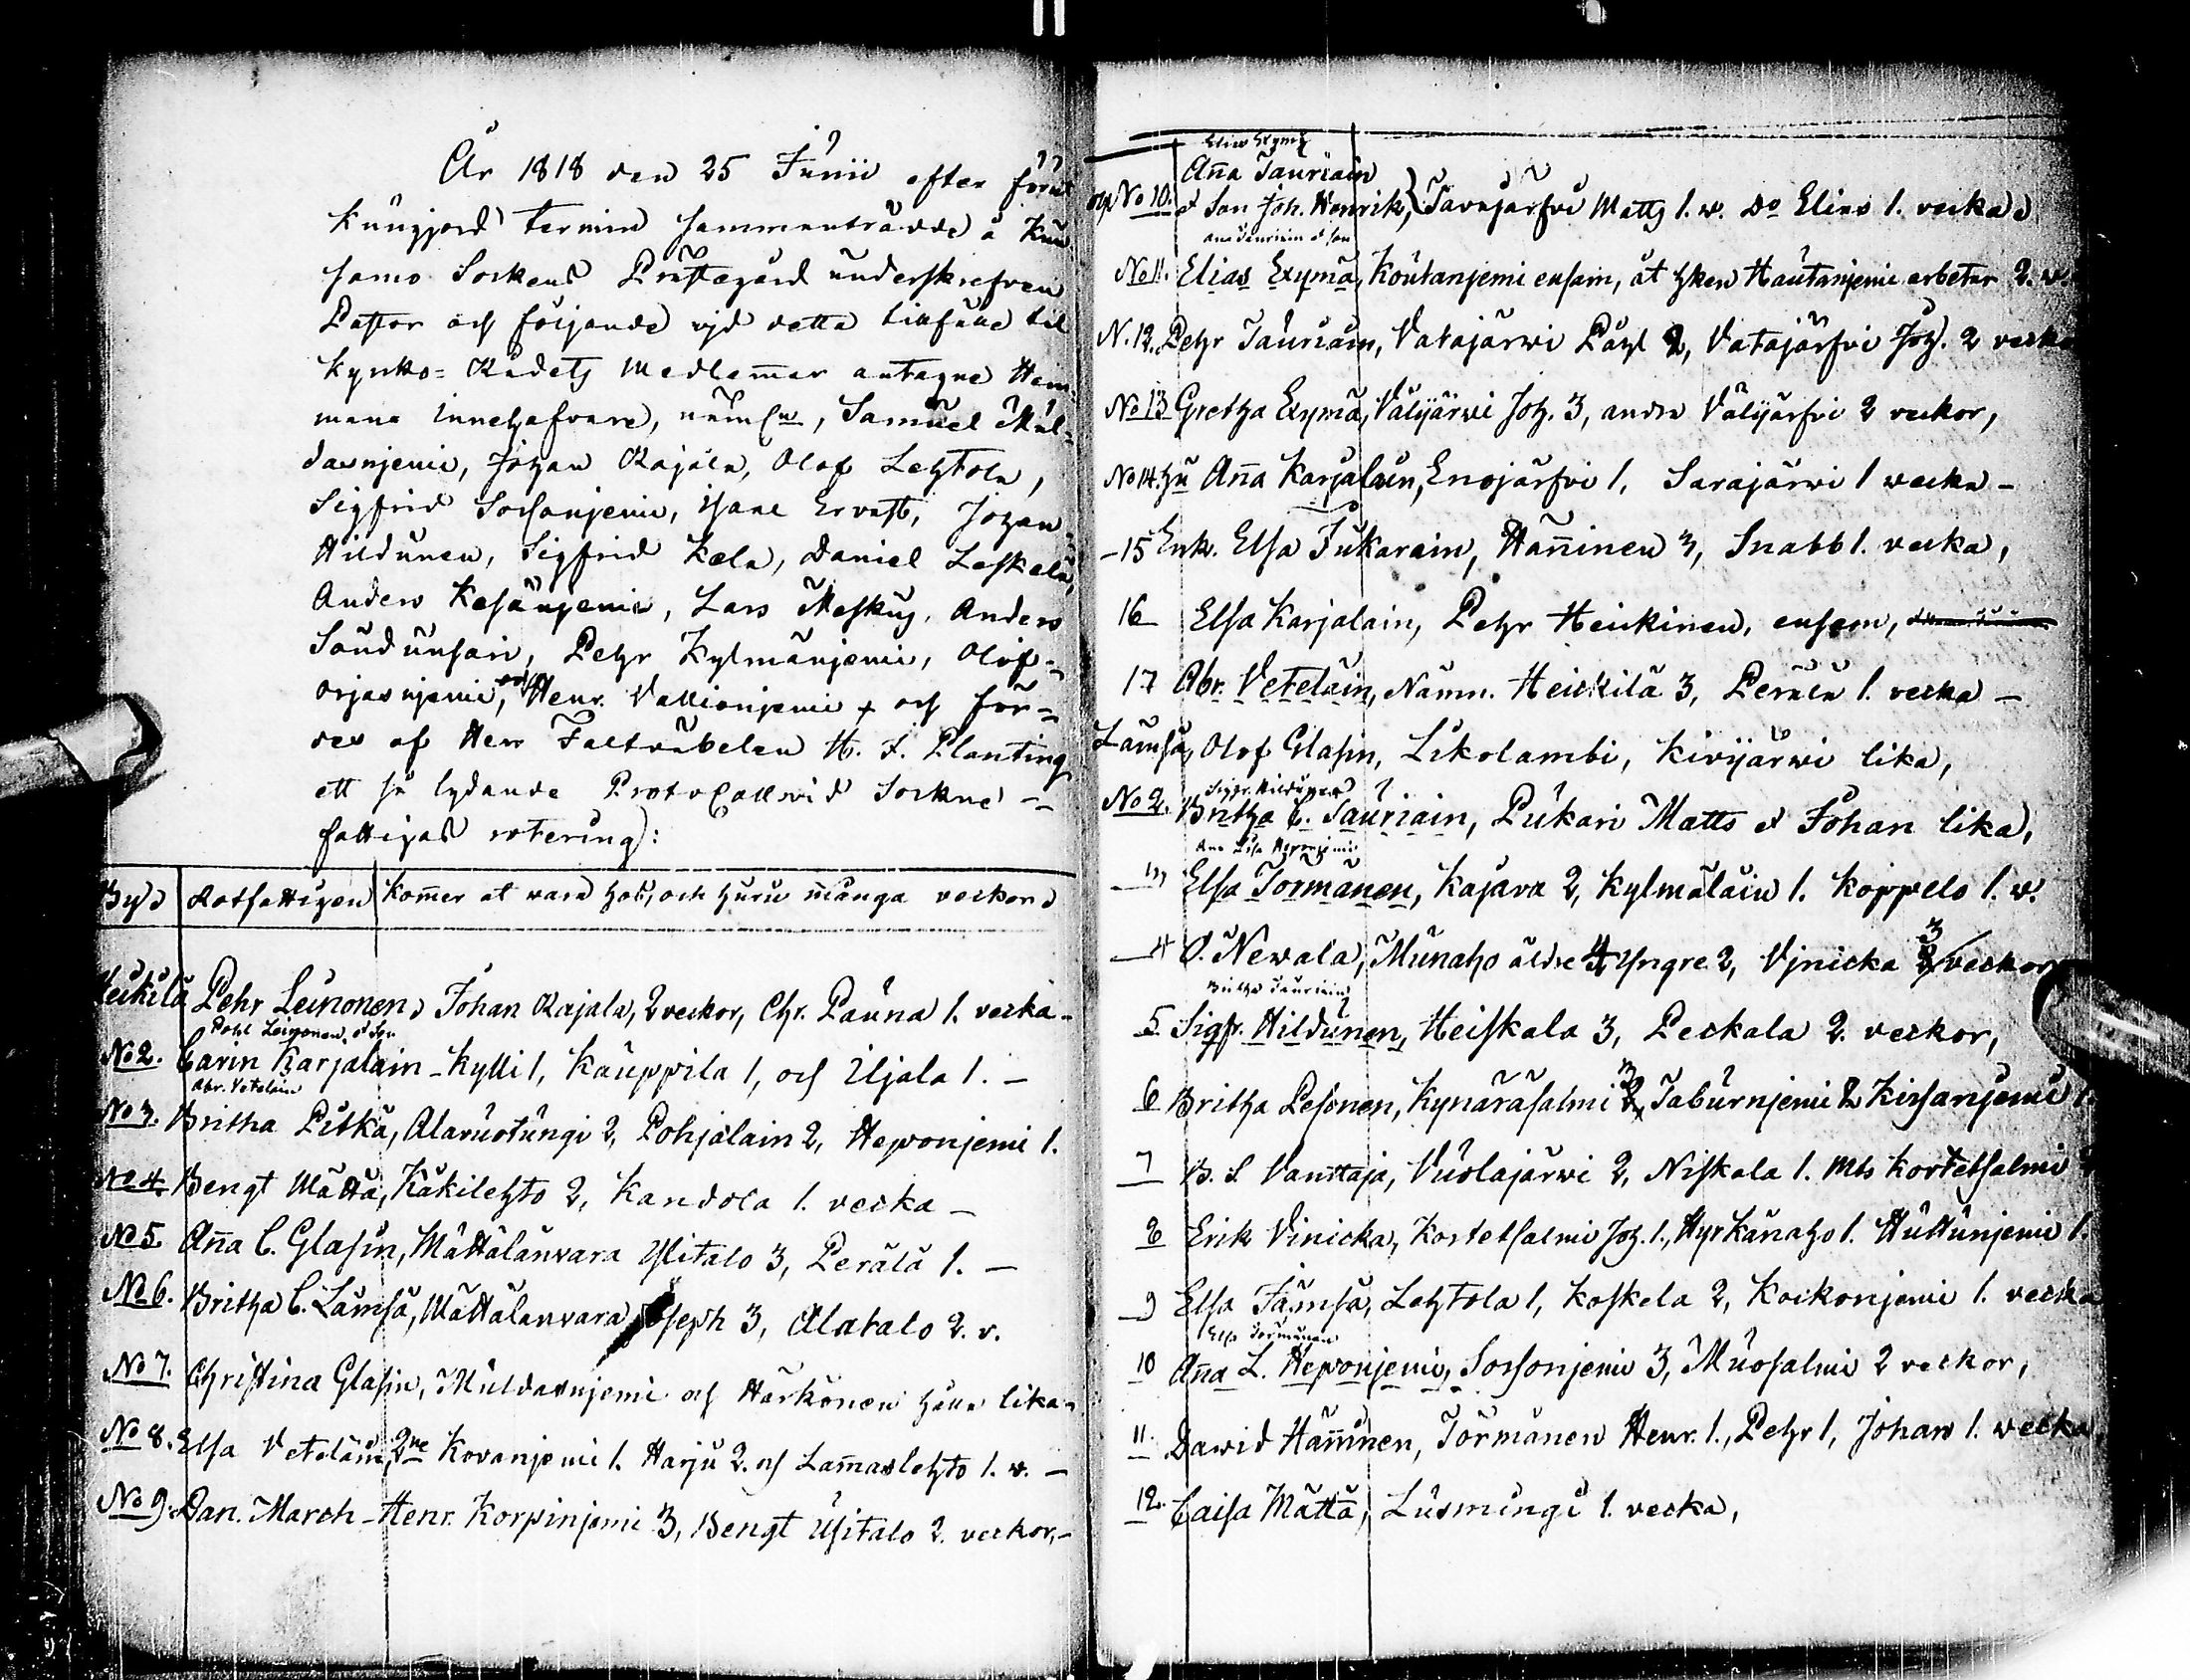 År 1818 den 25 Junii efter förut
kungjord termin sammanträdde å Kuu-
samo Sockens Prästegård underskrefven
Pastor och följande vid detta tillfälle til
Kyrko-Rådets Medlemmar antagne Hem-
mans innehafvare, Samuel Mul-
davnjemi, Johan Rajala, Olof Lehtola,
Sigfrid Sossonjemi, Isaac Ervasti, Johan
Hildunen, Sigfrid Kæla, Daniel Leskelä,
Anders Kesänjemi, Lars Meskus, Anders
Soudunsari, Pehr Kylmänjemi, Olof
Orjasnjemi, och Henr. Vallionjemi och för-
des af Herr H. J. Planting
ett så lydande Protocoll vid Sockne-
fattigas rotering:
By Rotfattigen Kom̄er at vara hos, och huru många veckor
Heikilä Pehr Leinonen Johan Rajala, 2 veckor, Chr. Pauna 1. vecka-
Pohl Leinonen & Son
No 2. Carin Karjalain - Kylli 1, Kauppila 1, och Iljala 1. -
Abr. Vetelain
No 3. Britha Pitkä, Alavuotungi 2, Pohjolain 2, Heponjemi 1.
No 4. Bengt Määttä, Käkilehto 2, Kandola 1. vecka -
No 5. An̄a C. Glasin, Määttälänvara Ylitalo 3, Perälä 1. -
No 6. Britha C. Lämsä, Määttälänvara Joseph 3, Alatalo 2. v.
No 7. Christina Glasin, Muldavnjemi och Härkönen lika
No 8. Elsa Vetelain, Kovanjemi 1. Harju 2. och Lam̄aslehto 1. v. -
No 9. Dan. March - Henr. Korpinjemi 3, Bengt Usitalo 2. veckor, -
Elias Exymä
An̄a Tauriain
No 10. & Son Joh. Henrik, Tavajärfvi Matts 1. v. Do Elias 1. vecka
Ana Tauriain & Son
No 11. Elias Exymä, Koutanjemi ensam, åt Hautanjemi arbetar 2. v.
N. 12. Pehr Tauriain, Vatajärwi Påhl 2, Vatajärfvi Joh. 2 veckor
No 13 Gretha Exymä, Välijärwi Joh. 3, andra Välijärfvi 2 veckor,
No 14. An̄a Karjalain, Enojärfvi 1, Sarajärwi 1 vecka -
- 15 Enk. Elsa Jukarain, Hän̄inen 3, Snabb 1. vecka,
16 Elsa Karjalain, Pehr Heickinen, ensam,
17 Abr. Vetelain, Nämn. Heickilä 3, Perälä 1. vecka -
Lämsä, Olof Glasin, Likolambi, Kivijärwi lika,
Sigfr. Hildunen
No 2. Britha C. Tauriain, Pukari Matts & Johan lika,
Ana Lisa Heponjemi
3 Elsa Törmänen, Kajava 2, Kylmäläin 1. Koppelo 1. v.
4 O. Nevala, Munaho äldre 4, Yngre 2, Vjnicka 3 veckor
Britha Tauriain
5 Sigfr. Hildunen, Heiskala 3, Peckala 2. veckor,
6 Britha Pesonen, Kynäräsalmi 3, Taburnjemi 2 Kirsanjemi 1.
7 B. L. Van̄taja, Vuolajärwi 2, Niskala 1. Mts Kortetsalmi
8 Erik Vinicka, Kortetsalmi Joh. 1., Hyrkänaho 1. Huttunjemi 1.
9 Elsa Jämsä, Lehtola 1, Koskela 2, Kockonjemi 1. vecka
Elsa Törmänen
10 An̄a L. Heponjemi, Sossonjemi 3, Muosalmi 2 veckor,
11. Dawid Häm̄inen, Törmänen Henr. 1., Pehr 1, Johan 1. vecka
12. Caisa Määttä, Lusmingi 1. vecka,